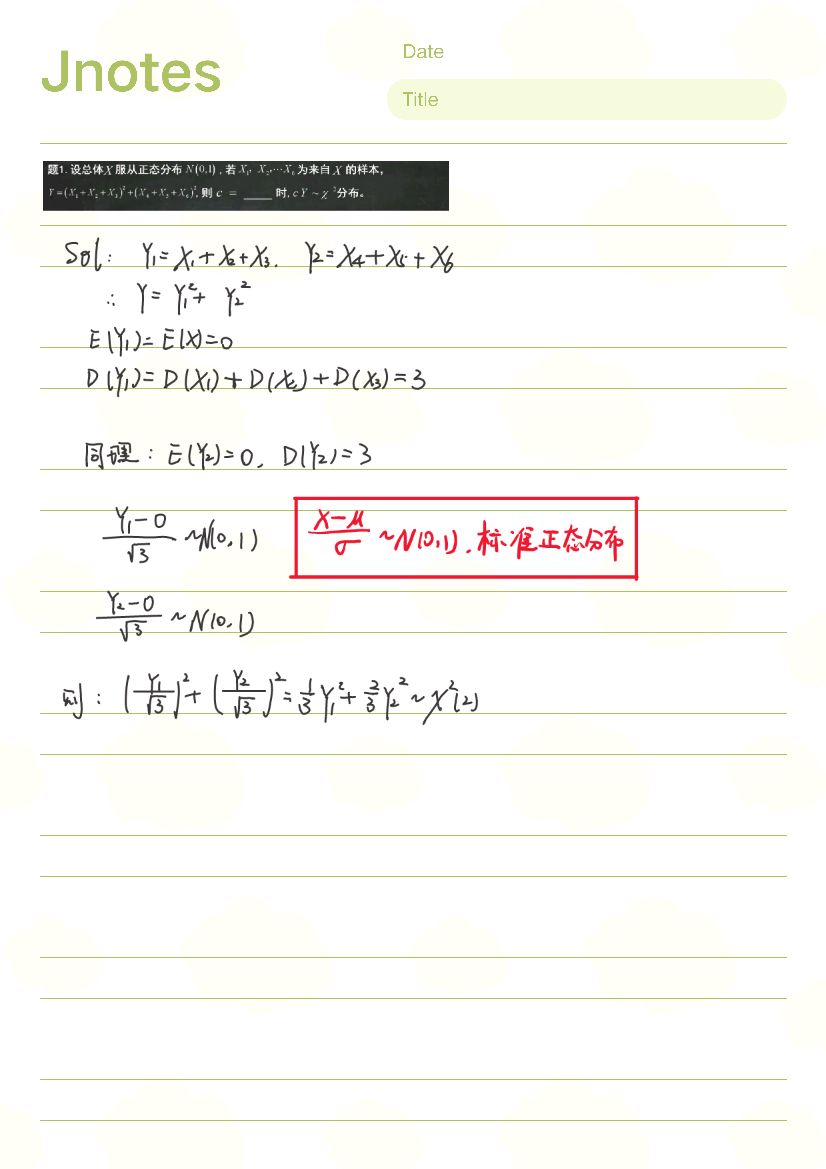 Jnotes
Date
Title
题1. 设总体X服从正态分布N(0,1), 若X₁, X₂,⋯X₆为来自X的样本,
Y=(X₁+X₂+X₃)²+(X₄+X₅+X₆)², 则 c = ____ 时, cY~χ²分布。
Sol: Y₁=X₁+X₂+X₃. Y₂=X₄+X₅+X₆
∴ Y=Y₁²+Y₂²
E(Y₁)=E(X)=0
D(Y₁)=D(X₁)+D(X₂)+D(X₃)=3
同理: E(Y₂)=0, D(Y₂)=3
(Y₁-0)/√3 ~N(0,1)
(X-μ)/σ ~N(0,1), 标准正态分布
(Y₂-0)/√3 ~N(0,1)
则: (Y₁/√3)²+(Y₂/√3)²=1/3 Y₁²+2/3 Y₂²~χ²(2)